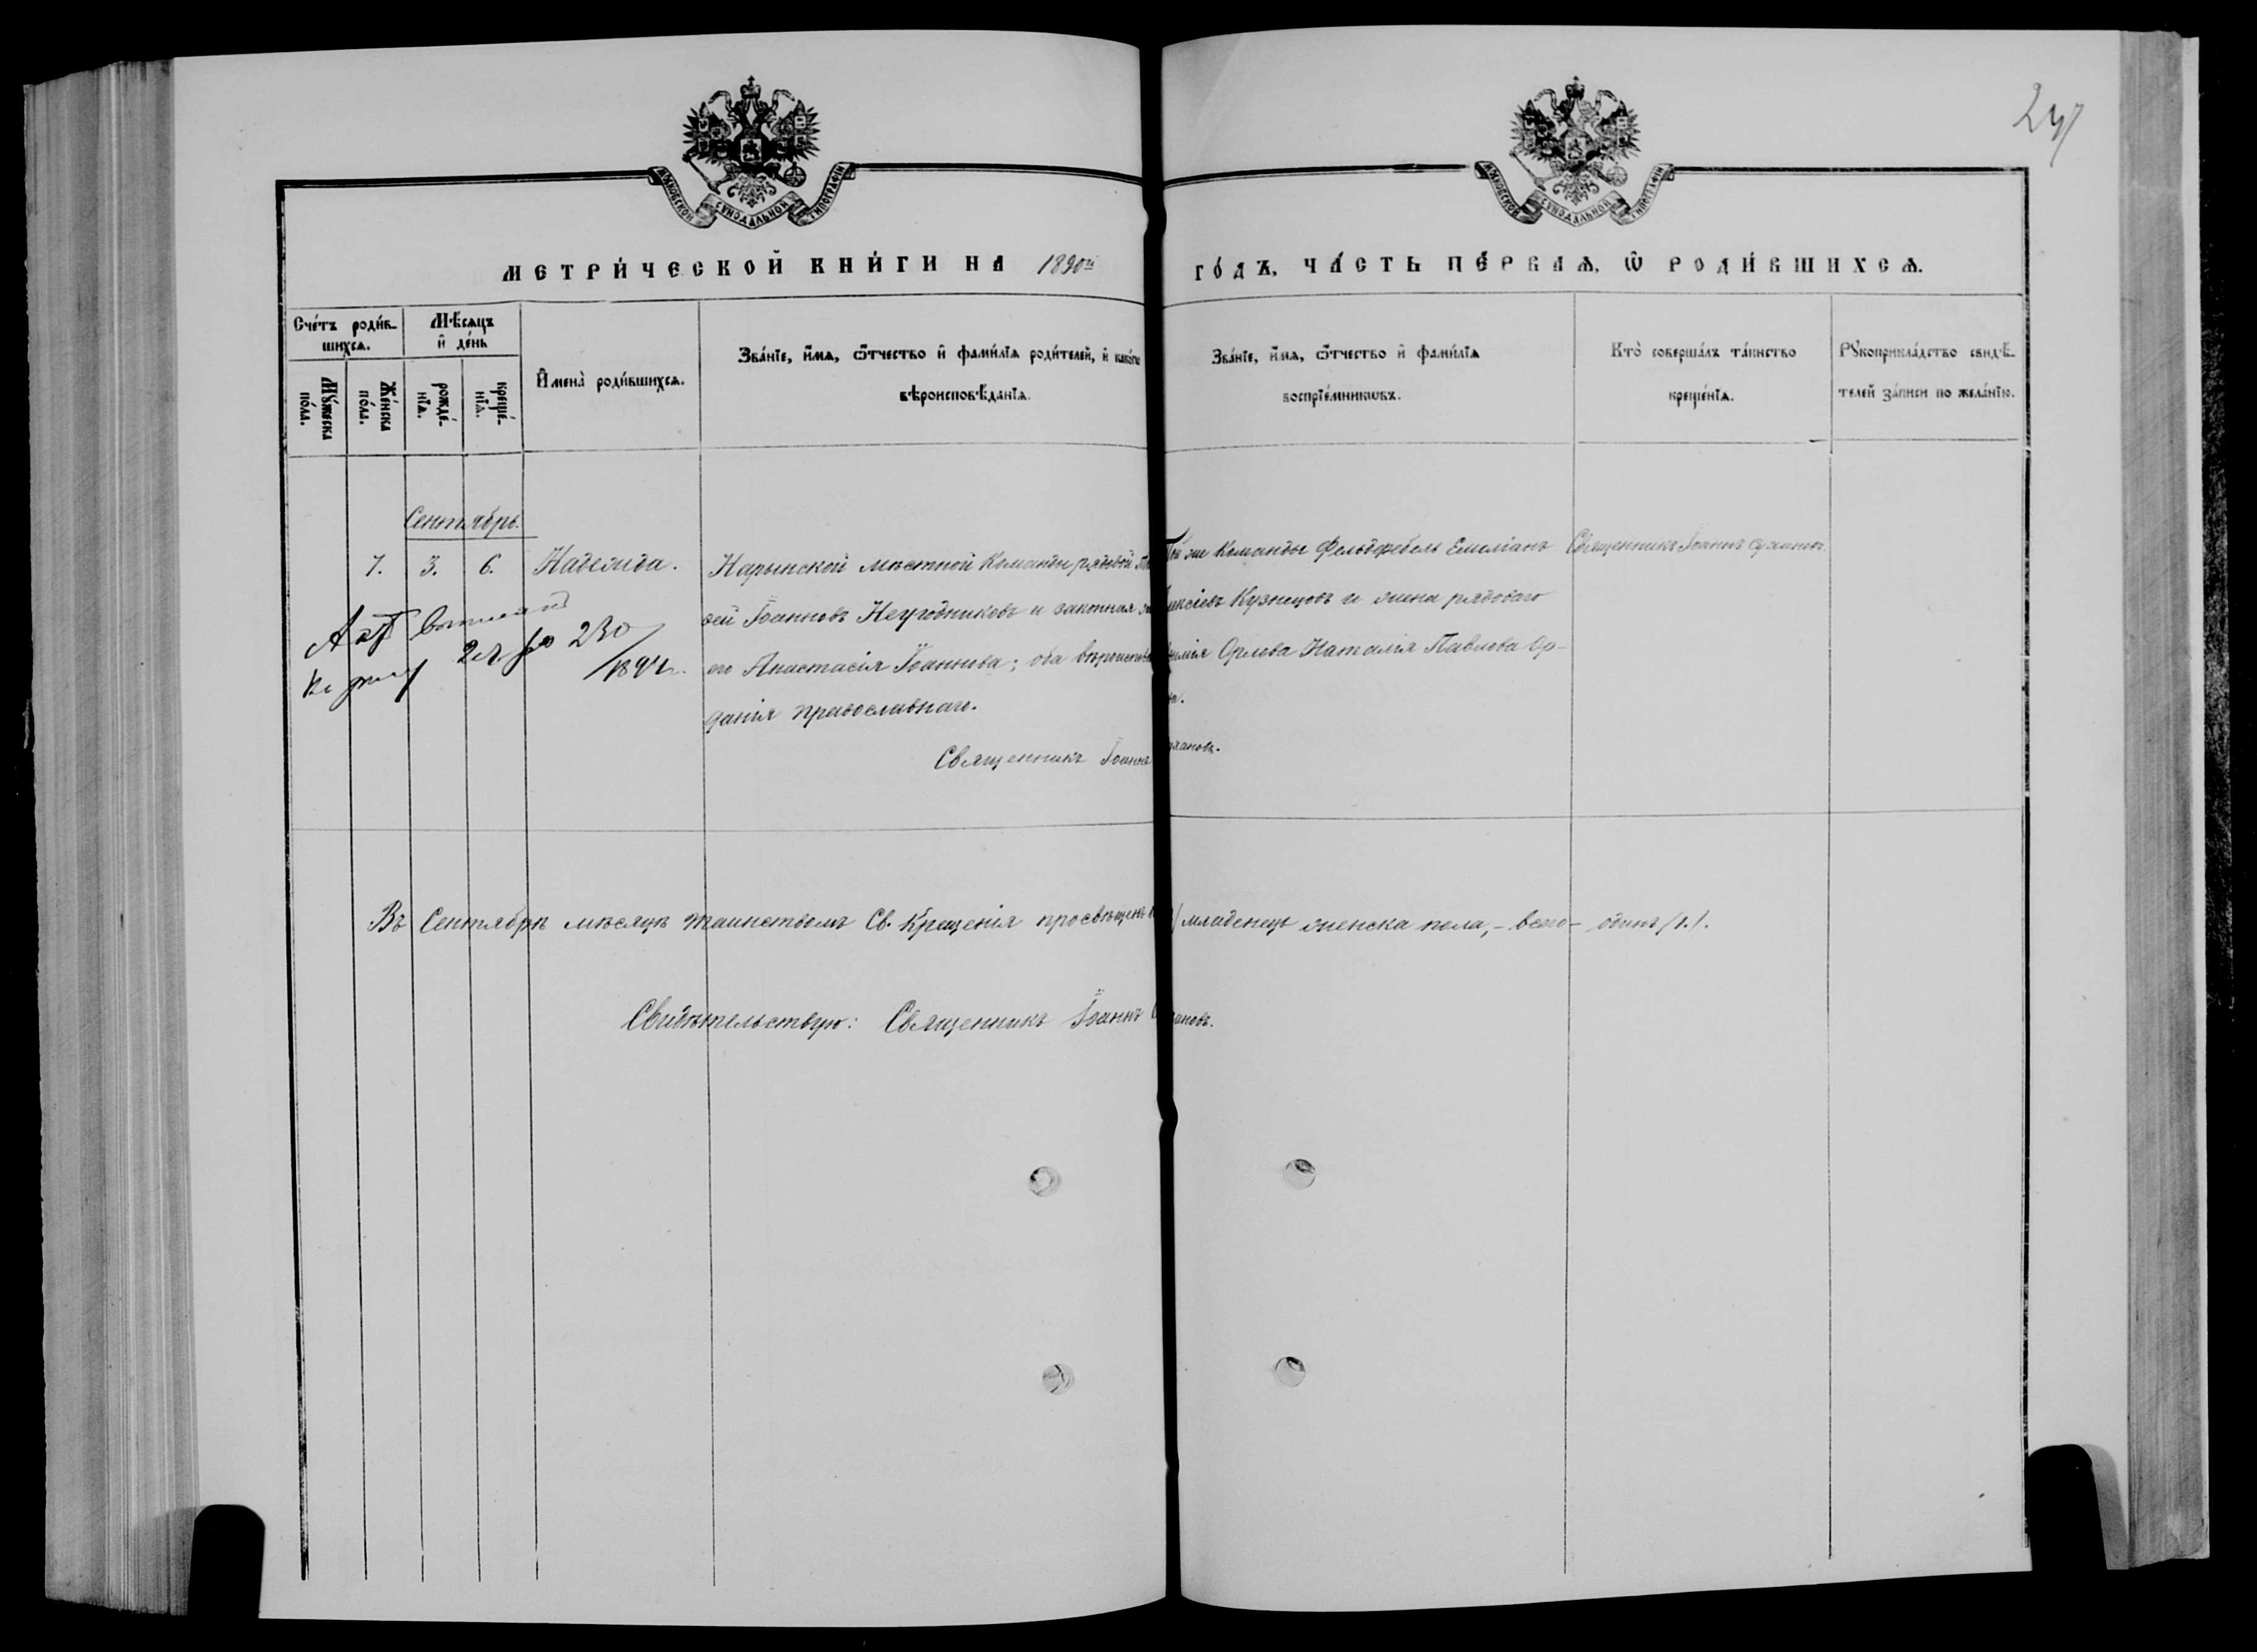 24
МОСКОВСКОЙ СУНОДАЛЬНОЙ ТИПОГРАФІИ
МОСКОВСКОЙ СУНОДАЛЬНОЙ ТИПОГРАФІИ
МЕТРИ́ЧЕСКОЙ КНИ́ГИ НА 1890й ГО́ДЪ, ЧА́СТЬ ПЕ́РВАѦ, Ѡ РОДИ́ВШИХСѦ.
Сче́тъ роди́в-
шихсѧ.
Мѣ́сѧцъ
и҆ де́нь
Мꙋ́жеска
по́ла.
Же́нска
по́ла.
рожде́-
нїѧ.
креще́-
нїѧ.
И҆мена̀ роди́вшихсѧ.
Зва́нїе, и҆́мѧ, ѻ҆́тчество и҆ фами́лїѧ роди́телей, и҆ како́гѡ
вѣроисповѣ́данїѧ.
Зва́нїе, и҆́мѧ, ѻ҆́тчество и҆ фами́лїѧ
воспрїе́мникѡвъ.
Кто̀ соверша́лъ та́инство
креще́нїѧ.
Рꙋкоприкла́дство свидѣ́-
телей за́писи по жела́нїю.
Сентябрь.
7. 3. 6. Надежда.
Нарынской мѣстной Команды рядовой
сей Іоанновъ Неугодниковъ и законная
его Анастасія Іоаннова; оба вѣроиспов
данія православнаго.
Священникъ Іоаннъ ухановъ.
Той же Команды Фельдфебель Емеліанъ
Алексѣевъ Кузнецовъ и жена рядоваго
Орлова Наталія Павлова Ор-
Священникъ Іоаннъ Сухановъ
230
1894г.
Въ Сентябрѣ мѣсяцѣ таинствомъ Св. Крещенія просвѣщенъ младенецъ женска пола,- всего- одинъ /1./.
Свидѣтельствую: Священникъ Іоаннъ Сухановъ.